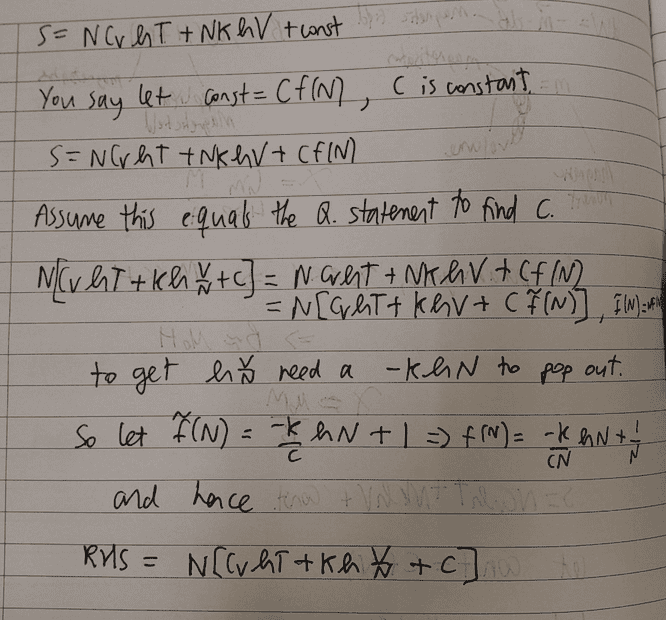 S = NCv lnT + NK lnV + const
You say let const = Cf(N), C is constant.
S = NCv lnT + NK lnV + Cf(N)
Assume this equals the Q. statement to find C.
N[Cv lnT + K ln V/N + C] = N Cv lnT + NK lnV + Cf(N)
= N[Cv lnT + K lnV + C f̃(N)],
to get ln V/N need a -K lnN to pop out.
So let f̃(N) = -K/C lnN + 1 => f(N) = -K/CN lnN + 1/N
and hence
RHS = N[Cv lnT + K ln V/N + C]